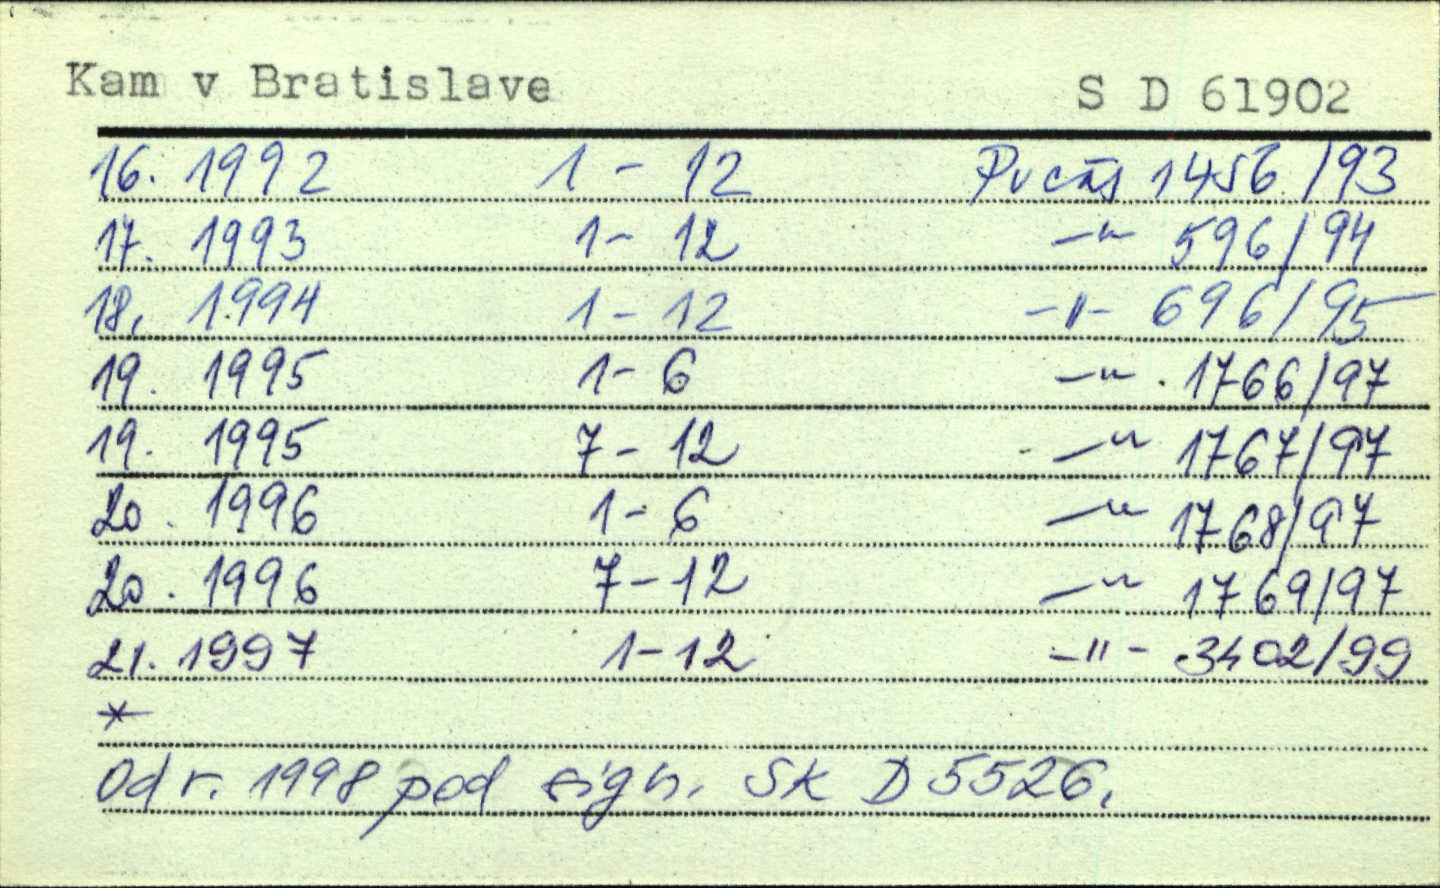 Kam v Bratislave S D 61902
16. 1992 1 - 12 Pvčas 1456/93
17. 1993 1 - 12 -"- 596/94
18. 1994 1 - 12 -"- 696/95
19. 1995 1 - 6 -"- 1766/97
19. 1995 7 - 12 -"- 1767/97
20. 1996 1 - 6 -"- 1768/97
20. 1996 7 - 12 -"- 1769/97
21. 1997 1 - 12 -"- 3402/99
*
Od r. 1998 pod sign. Sk D 5526.